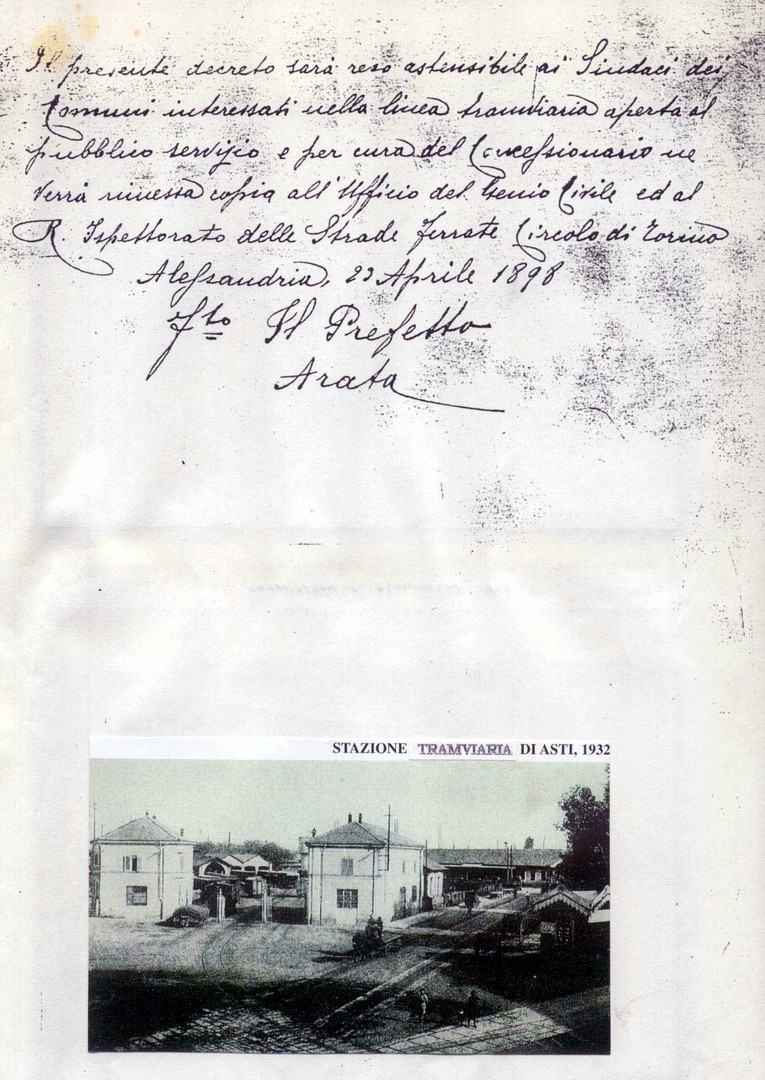 Il presente decreto sarà reso astensibile ai Sindaci dei
Comuni interessati nella linea tramviaria aperta al
pubblico servizio e per cura del Concessionario ne
verrà rimessa copia all'Ufficio del Genio Civile ed al
R. Ispettorato delle Strade ferrate Circolo di Torino
Alessandria, 23 Aprile 1898
Fto Il Prefetto
Arata
STAZIONE TRAMVIARIA DI ASTI, 1932